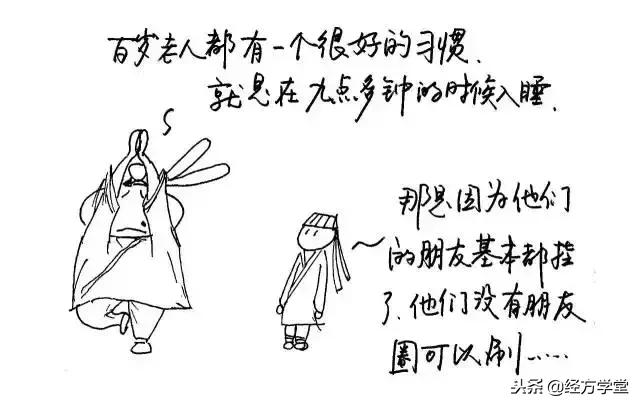 百岁老人都有一个很好的习惯.
就是在九点多钟的时候入睡.
那是因为他们
的朋友基本都挂
了.他们没有朋友
圈可以刷……
头条@经方学堂